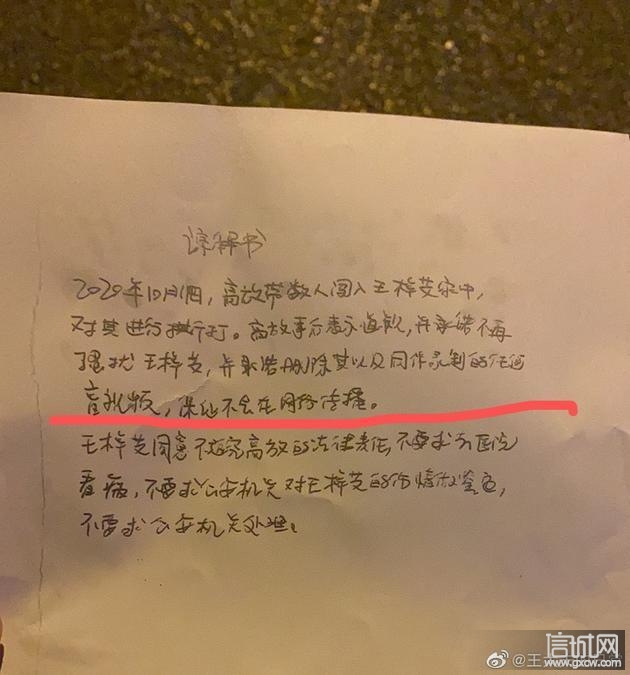 谅解书
2020年10月1日,高放带数人闯入王梓芠家中,
对其进行殴打。高放事后表示道歉,并承诺不再
骚扰王梓芠,并承诺删除其以及同伴录制的任何
音视频,保证不会在网络传播。
王梓芠同意不追究高放的法律责任,不要求去医院
看病,不要求公安机关对王梓芠的伤情做鉴定,
不要求公安机关处理。
信诚网
www.gxcw.com
@王